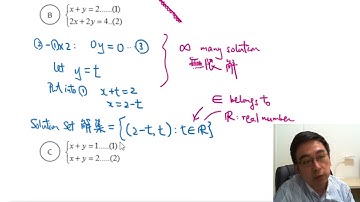 B
x + y = 2 ......(1)
2x + 2y = 4..(2)
(2)-(1)×2: 0y = 0 ...③
let y = t
Put into ① x+t=2
x = 2-t
∞ many solution
無限解
∈ belongs to
ℝ: real number
Solution Set 解集 = {(2-t, t) : t∈ℝ}
C
x + y = 1......(1)
x + y = 2......(2)